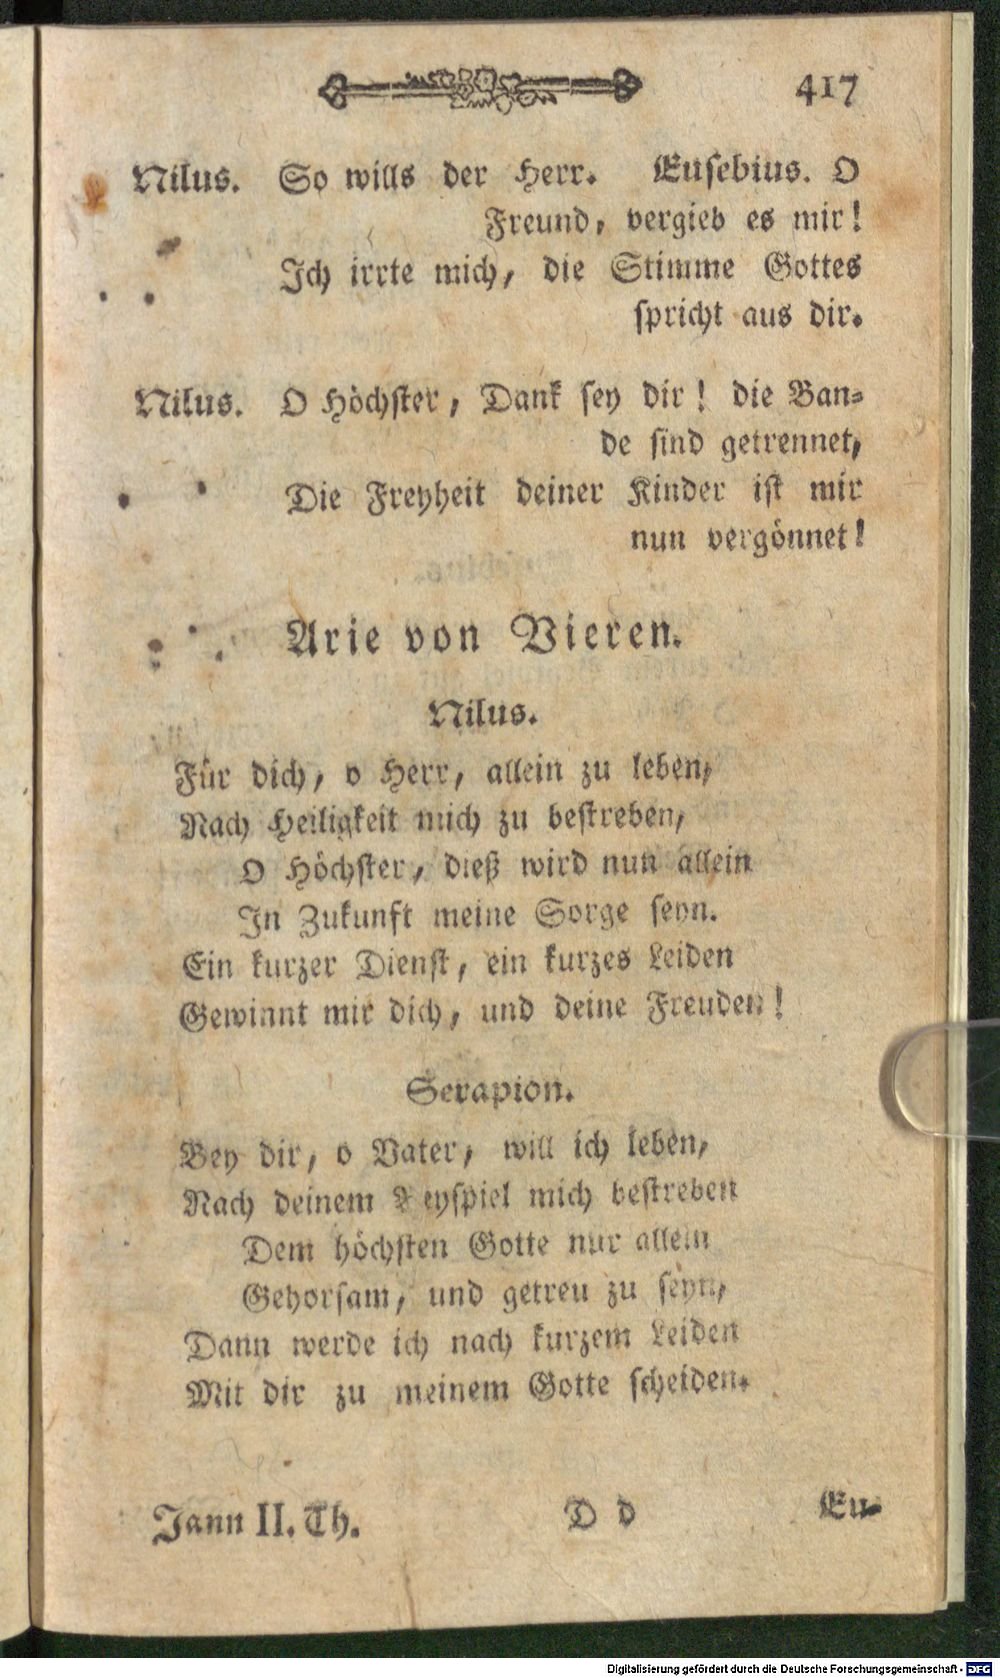 417
Nilus. So wills der Herr. Eusebius. O
Freund, vergieb es mir!
Ich irrte mich, die Stimme Gottes
spricht aus dir.
Nilus. O Höchster, Dank sey dir! die Ban-
de sind getrennet,
Die Freyheit deiner Kinder ist mir
nun vergönnet!
Arie von Vieren.
Nilus.
Für dich, o Herr, allein zu leben,
Nach Heiligkeit mich zu bestreben,
O Höchster, dieß wird nun allein
In Zukunft meine Sorge seyn.
Ein kurzer Dienst, ein kurzes Leiden
Gewinnt mir dich, und deine Freuden!
Serapion.
Bey dir, o Vater, will ich leben,
Nach deinem Beyspiel mich bestreben
Dem höchsten Gotte nur allein
Gehorsam, und getreu zu seyn,
Dann werde ich nach kurzem Leiden
Mit dir zu meinem Gotte scheiden.
Jann II. Th. D d Eu-
Digitalisierung gefördert durch die Deutsche Forschungsgemeinschaft - DFG